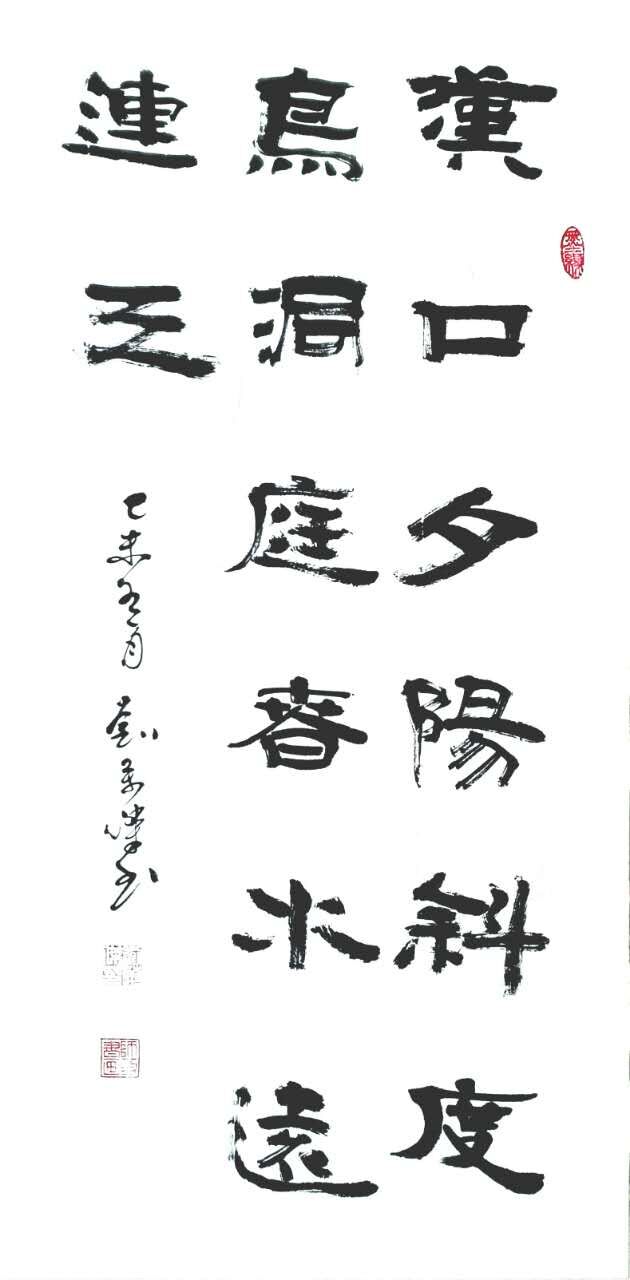 漢口夕陽斜度
鳥洞庭春水遠
連天
乙未 月 劉 书